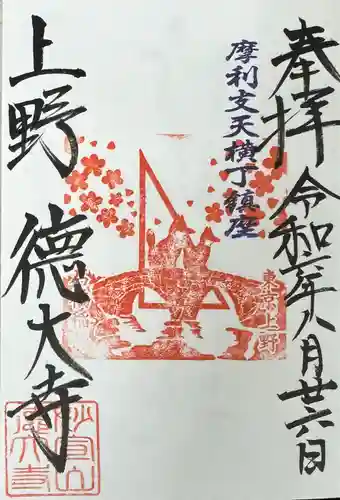 奉拝 令和二年八月廿六日
摩利支天横丁鎮座
上野 徳大寺
東京上野